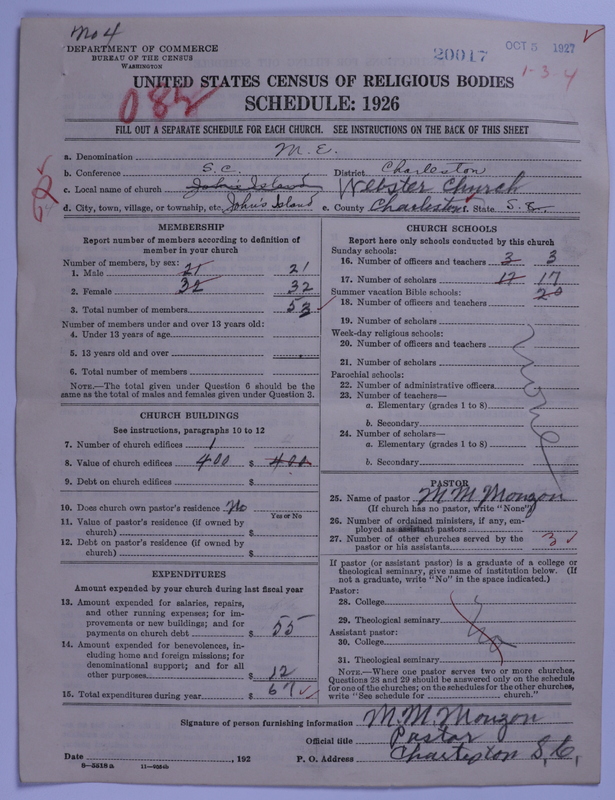 No 4
DEPARTMENT OF COMMERCE
BUREAU OF THE CENSUS
WASHINGTON
20017 OCT 5 1927
1-3-4
UNITED STATES CENSUS OF RELIGIOUS BODIES
082
SCHEDULE: 1926
FILL OUT A SEPARATE SCHEDULE FOR EACH CHURCH. SEE INSTRUCTIONS ON THE BACK OF THIS SHEET
a. Denomination M. E.
b. Conference S. C. District Charleston
c. Local name of church John's Island Webster Church
d. City, town, village, or township, etc. John's Island e. County Charleston f. State S. C.
MEMBERSHIP
Report number of members according to definition of
member in your church
Number of members, by sex:
1. Male 21 21
2. Female 32 32
3. Total number of members 53
Number of members under and over 13 years old:
4. Under 13 years of age
5. 13 years old and over
6. Total number of members
NOTE.—The total given under Question 6 should be the
same as the total of males and females given under Question 3.
CHURCH BUILDINGS
See instructions, paragraphs 10 to 12
7. Number of church edifices 1
8. Value of church edifices 400 $ 400
9. Debt on church edifices $
10. Does church own pastor's residence No
Yes or No
11. Value of pastor's residence (if owned by
church) $
12. Debt on pastor's residence (if owned by
church) $
EXPENDITURES
Amount expended by your church during last fiscal year
13. Amount expended for salaries, repairs,
and other running expenses; for im-
provements or new buildings; and for
payments on church debt $ 55
14. Amount expended for benevolences, in-
cluding home and foreign missions; for
denominational support; and for all
other purposes $ 12
15. Total expenditures during year $ 67
CHURCH SCHOOLS
Report here only schools conducted by this church
Sunday schools:
16. Number of officers and teachers 3 3
17. Number of scholars 17 17
Summer vacation Bible schools: 20
18. Number of officers and teachers
19. Number of scholars
Week-day religious schools:
20. Number of officers and teachers
21. Number of scholars
Parochial schools:
22. Number of administrative officers
23. Number of teachers—
a. Elementary (grades 1 to 8)
b. Secondary
24. Number of scholars—
a. Elementary (grades 1 to 8)
b. Secondary
None
PASTOR
25. Name of pastor M M Mouzon
(If church has no pastor, write "None")
26. Number of ordained ministers, if any, em-
ployed as assistant pastors
27. Number of other churches served by the
pastor or his assistants 3
If pastor (or assistant pastor) is a graduate of a college or
theological seminary, give name of institution below. (If
not a graduate, write "No" in the space indicated.)
Pastor:
28. College
29. Theological seminary
Assistant pastor: No
30. College
31. Theological seminary
NOTE.—Where one pastor serves two or more churches,
Questions 28 and 29 should be answered only on the schedule
for one of the churches; on the schedules for the other churches,
write "See schedule for church."
Signature of person furnishing information M. M. Mouzon
Official title Pastor
Date , 192 P. O. Address Charleston S. C.
8—5518 a 11—9554b